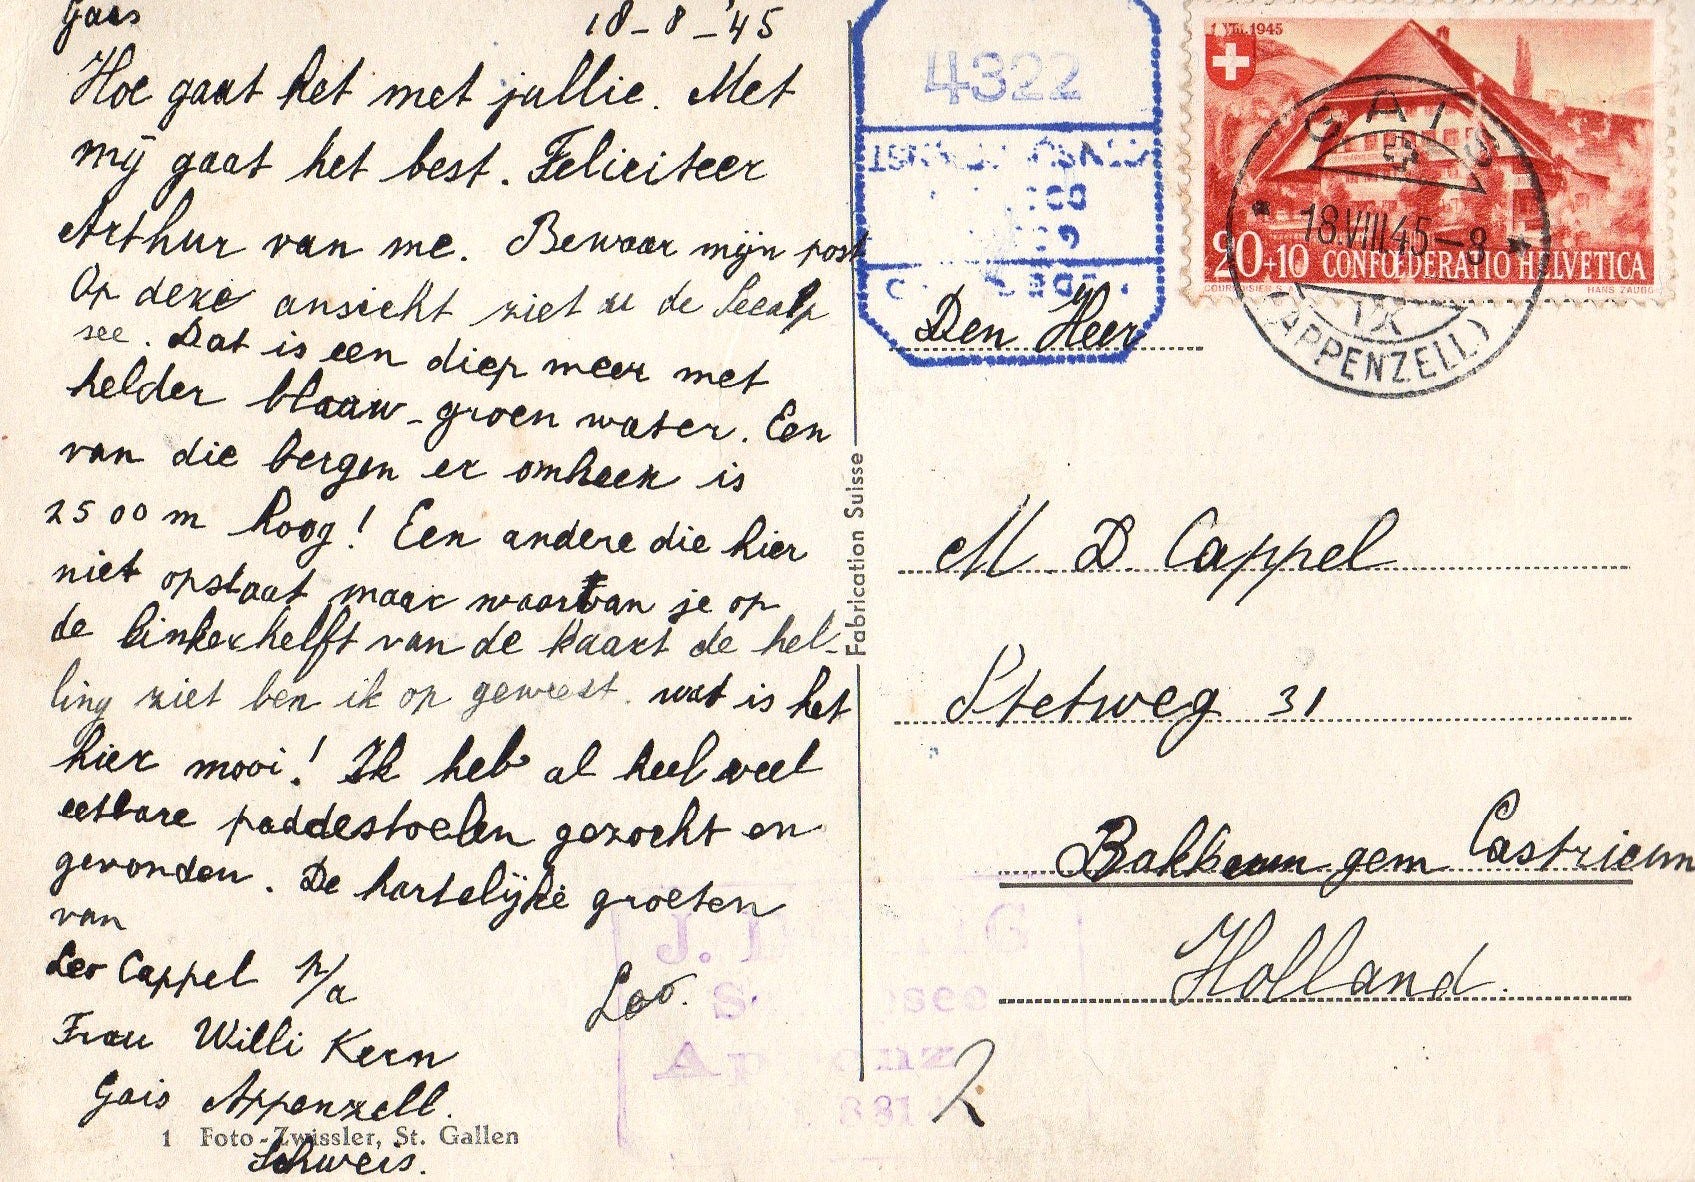 Gais 18-8-'45
Hoe gaat het met jullie. Met
mij gaat het best. Feliciteer
Arthur van me. Bewaar mijn post
Op deze ansicht ziet u de Seealp
see. Dat is een diep meer met
helder blauw-groen water. Een
van die bergen er omheen is
2500 m hoog! Een andere die hier
niet opstaat maar waarvan je op
de linkerhelft van de kaart de hel-
ling ziet ben ik op geweest. wat is het
hier mooi! Ik heb al heel veel
eetbare paddestoelen gezocht en
gevonden. De hartelijke groeten
van
Leo Cappel p/a
Leo.
Frau Willi Kern
Gais Appenzell.
1 Foto-Zwissler, St. Gallen
Schweis.
Fabrication Suisse
4322
1 VIII.1945
20+10 CONFŒDERATIO HELVETICA
COURVOISIER S.A. HANS ZAUGG
GAIS
18.VIII.45-8
(APPENZELL)
Den Heer
M. D. Cappel
Stetweg 31
Bakkum gem Castricum
Holland.
2